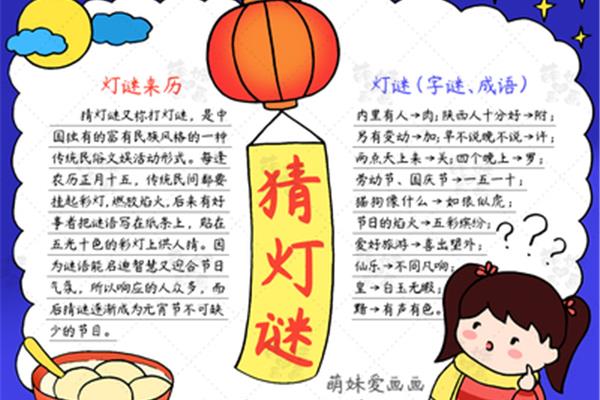 灯谜来历
猜灯谜又称打灯谜，是中
国独有的富有民族风格的一种
传统民俗文娱活动形式。每逢
农历正月十五，传统民间都要
挂起彩灯，燃放焰火，后来有好
事者把谜语写在纸条上，贴在
五光十色的彩灯上供人猜。因
为谜语能启迪智慧又迎合节日
气氛，所以响应的人众多，而
后猜谜逐渐成为元宵节不可缺
少的节目。
猜灯谜
灯谜（字谜、成语）
内里有人→肉；陕西人十分好→附；
另有变动→加；早不说晚不说→许；
两点天上来→关；四个晚上→罗；
劳动节、国庆节→一五一十；
猫狗像什么→如狼似虎；
节日的焰火→五彩缤纷；
爱好旅游→喜出望外；
仙乐→不同凡响；
皇→白玉无瑕；
黯→有声有色。
萌妹爱画画